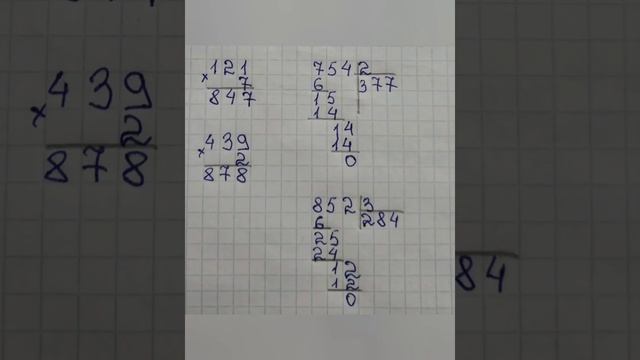 × 121
7
847
× 439
2
878
754 2
6 377
15
14
14
14
0
852 3
6 284
25
24
12
12
0
× 439
2
878
84